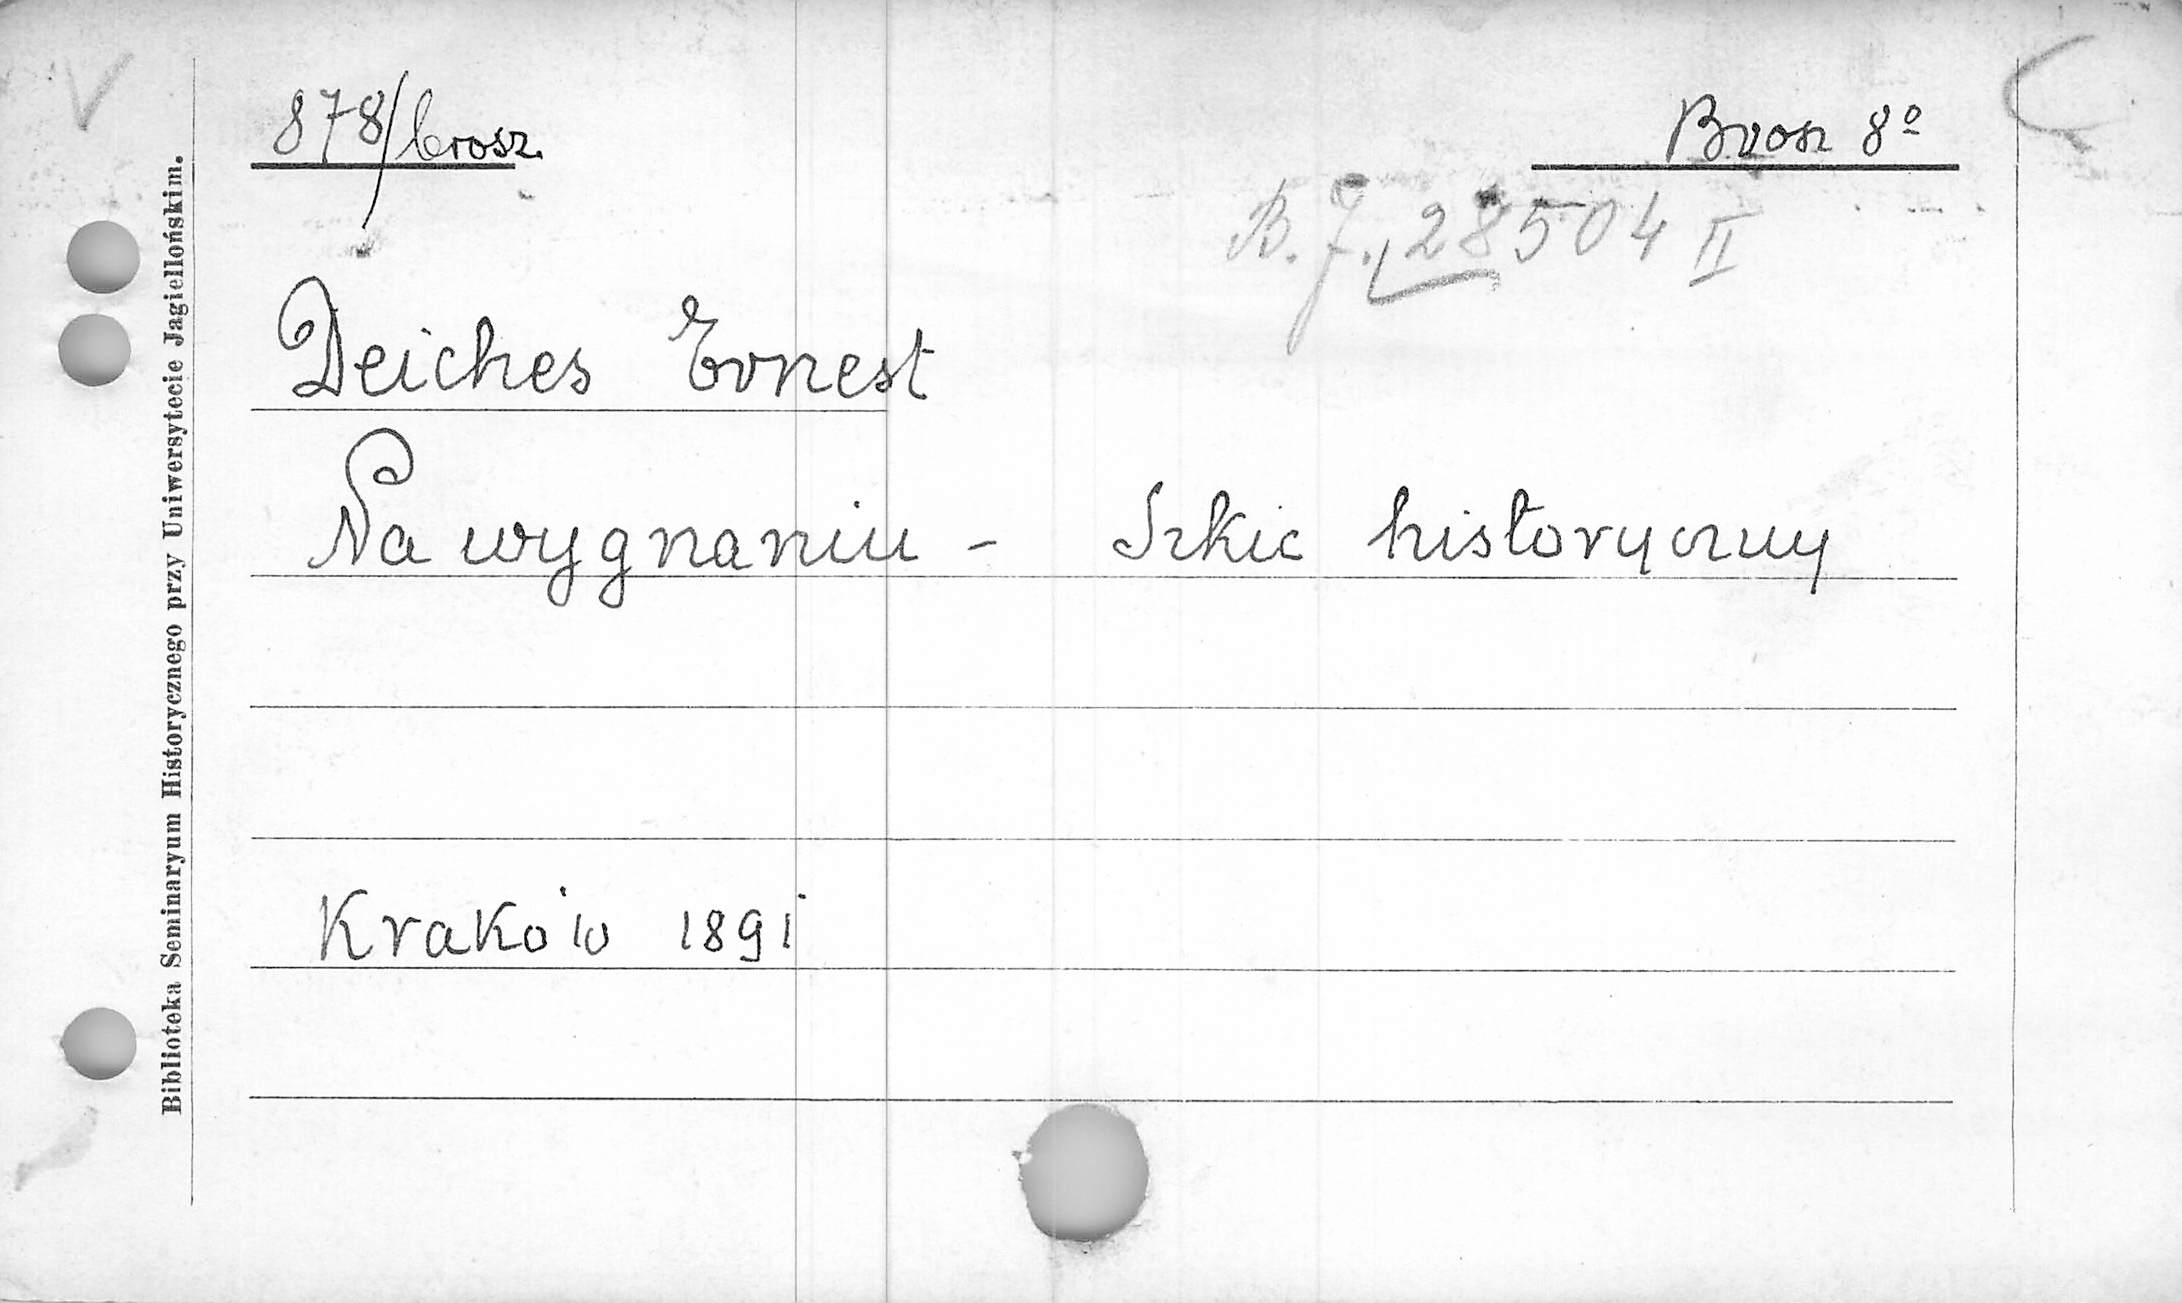 878/brosz.
Brosz 8º
B. J. 28504 II
Deiches Ernest
Na wygnaniu - Szkic historyczny
Kraków 1891
Biblioteka Seminaryum Historycznego przy Uniwersytecie Jagiellońskim.